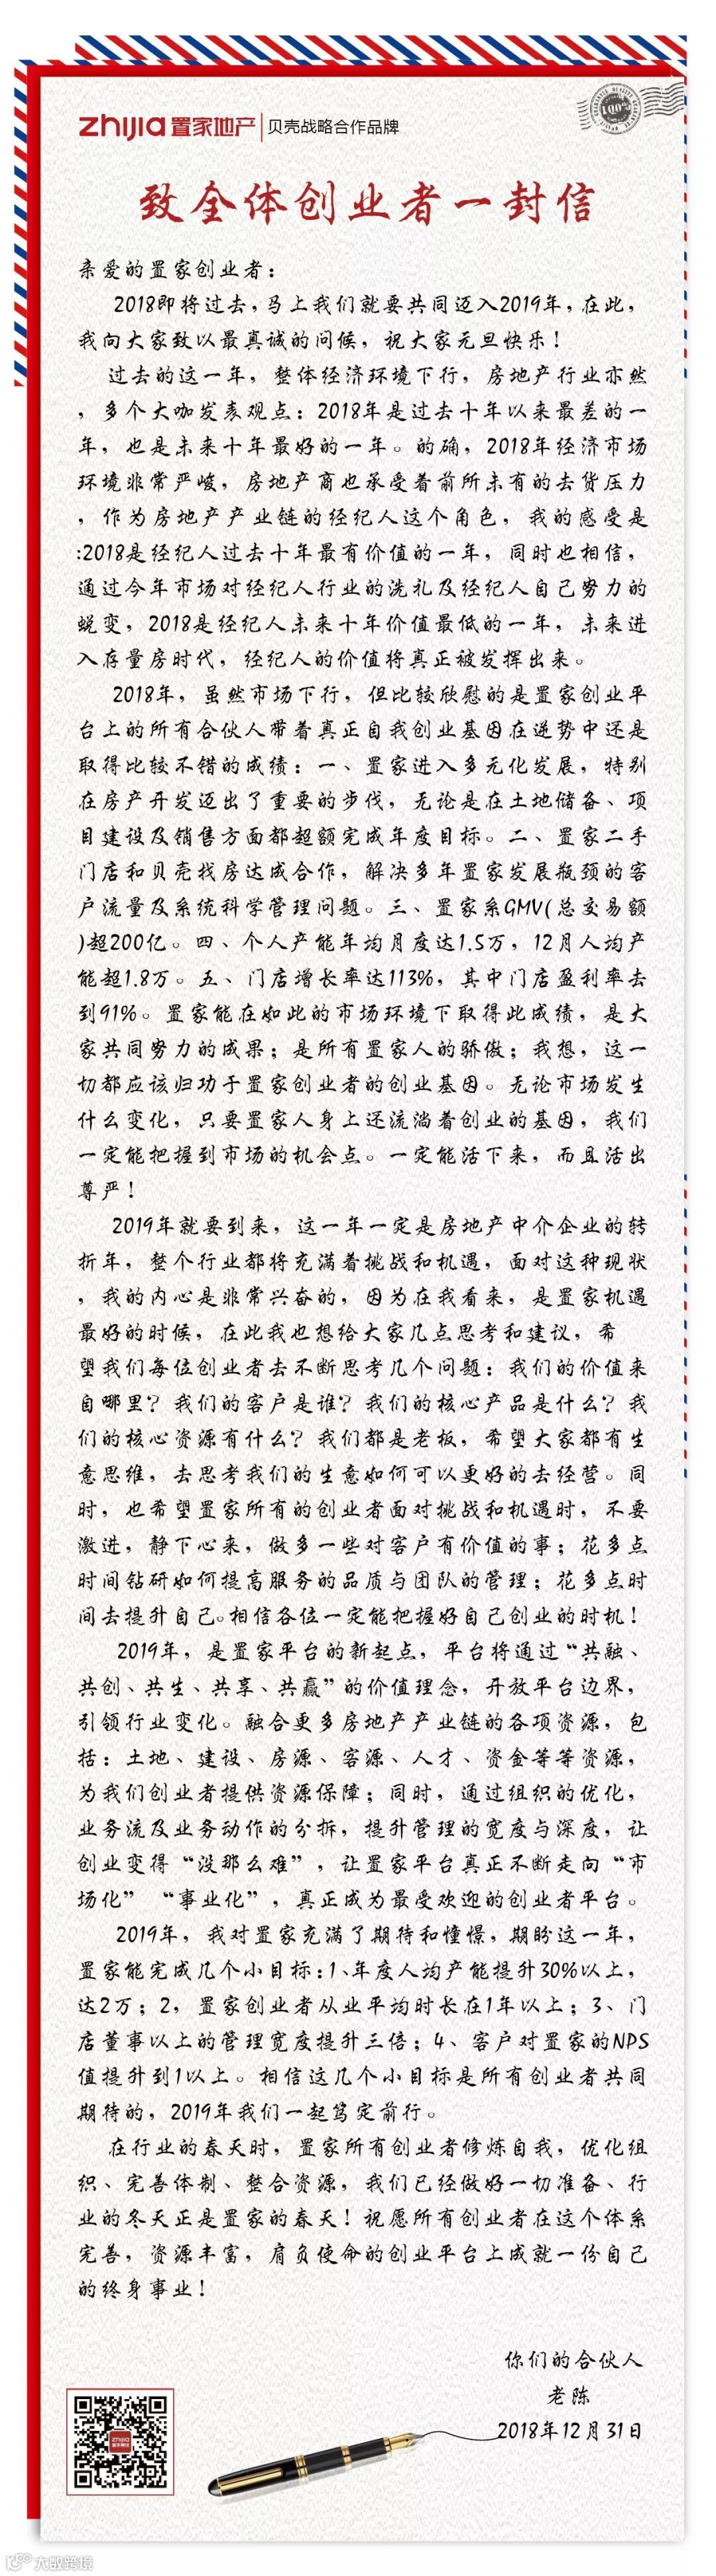 zhijia置家地产|贝壳战略合作品牌
100%
致全体创业者一封信
亲爱的置家创业者：
2018即将过去，马上我们就要共同迈入2019年，在此，
我向大家致以最真诚的问候，祝大家元旦快乐！
过去的这一年，整体经济环境下行，房地产行业亦然
，多个大咖发表观点：2018年是过去十年以来最差的一
年，也是未来十年最好的一年。的确，2018年经济市场
环境非常严峻，房地产商也承受着前所未有的去货压力
，作为房地产产业链的经纪人这个角色，我的感受是
:2018是经纪人过去十年最有价值的一年，同时也相信，
通过今年市场对经纪人行业的洗礼及经纪人自己努力的
蜕变，2018是经纪人未来十年价值最低的一年，未来进
入存量房时代，经纪人的价值将真正被发挥出来。
2018年，虽然市场下行，但比较欣慰的是置家创业平
台上的所有合伙人带着真正自我创业基因在逆势中还是
取得比较不错的成绩：一、置家进入多元化发展，特别
在房产开发迈出了重要的步伐，无论是在土地储备、项
目建设及销售方面都超额完成年度目标。二、置家二手
门店和贝壳找房达成合作，解决多年置家发展瓶颈的客
户流量及系统科学管理问题。三、置家系GMV(总交易额
)超200亿。四、个人产能年均月度达1.5万，12月人均产
能超1.8万。五、门店增长率达113%，其中门店盈利率去
到91%。置家能在如此的市场环境下取得此成绩，是大
家共同努力的成果；是所有置家人的骄傲；我想，这一
切都应该归功于置家创业者的创业基因。无论市场发生
什么变化，只要置家人身上还流淌着创业的基因，我们
一定能把握到市场的机会点。一定能活下来，而且活出
尊严！
2019年就要到来，这一年一定是房地产中介企业的转
折年，整个行业都将充满着挑战和机遇，面对这种现状
，我的内心是非常兴奋的，因为在我看来，是置家机遇
最好的时候，在此我也想给大家几点思考和建议，希
望我们每位创业者去不断思考几个问题：我们的价值来
自哪里？我们的客户是谁？我们的核心产品是什么？我
们的核心资源有什么？我们都是老板，希望大家都有生
意思维，去思考我们的生意如何可以更好的去经营。同
时，也希望置家所有的创业者面对挑战和机遇时，不要
激进，静下心来，做多一些对客户有价值的事；花多点
时间钻研如何提高服务的品质与团队的管理；花多点时
间去提升自己。相信各位一定能把握好自己创业的时机！
2019年，是置家平台的新起点，平台将通过“共融、
共创、共生、共享、共赢”的价值理念，开放平台边界，
引领行业变化。融合更多房地产产业链的各项资源，包
括：土地、建设、房源、客源、人才、资金等等资源，
为我们创业者提供资源保障；同时，通过组织的优化，
业务流及业务动作的分拆，提升管理的宽度与深度，让
创业变得“没那么难”，让置家平台真正不断走向“市
场化”“事业化”，真正成为最受欢迎的创业者平台。
2019年，我对置家充满了期待和憧憬，期盼这一年，
置家能完成几个小目标：1、年度人均产能提升30%以上，
达2万；2，置家创业者从业平均时长在1年以上；3、门
店董事以上的管理宽度提升三倍；4、客户对置家的NPS
值提升到1以上。相信这几个小目标是所有创业者共同
期待的，2019年我们一起笃定前行。
在行业的春天时，置家所有创业者修炼自我，优化组
织、完善体制、整合资源，我们已经做好一切准备、行
业的冬天正是置家的春天！祝愿所有创业者在这个体系
完善，资源丰富，肩负使命的创业平台上成就一份自己
的终身事业！
你们的合伙人
老陈
2018年12月31日
大数跨境